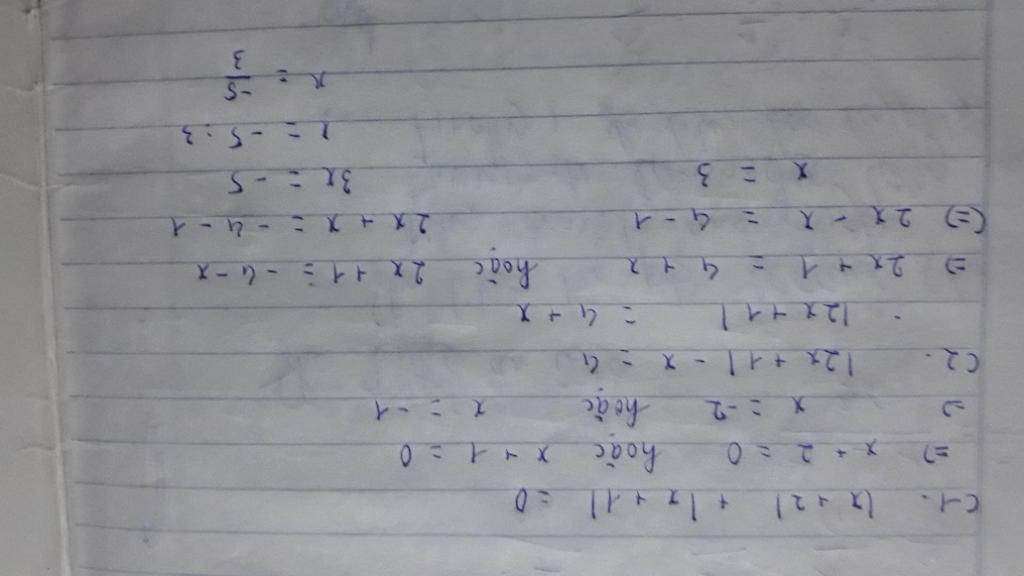 C1. |x + 2| + |x + 1| = 0
=> x + 2 = 0 hoặc x + 1 = 0
=> x = -2 hoặc x = -1
C2. |2x + 1| - x = 4
. |2x + 1| = 4 + x
=> 2x + 1 = 4 + x hoặc 2x + 1 = - 4 - x
(=> 2x - x = 4 - 1 2x + x = - 4 - 1
x = 3 3x = - 5
x = - 5 : 3
x = -5/3